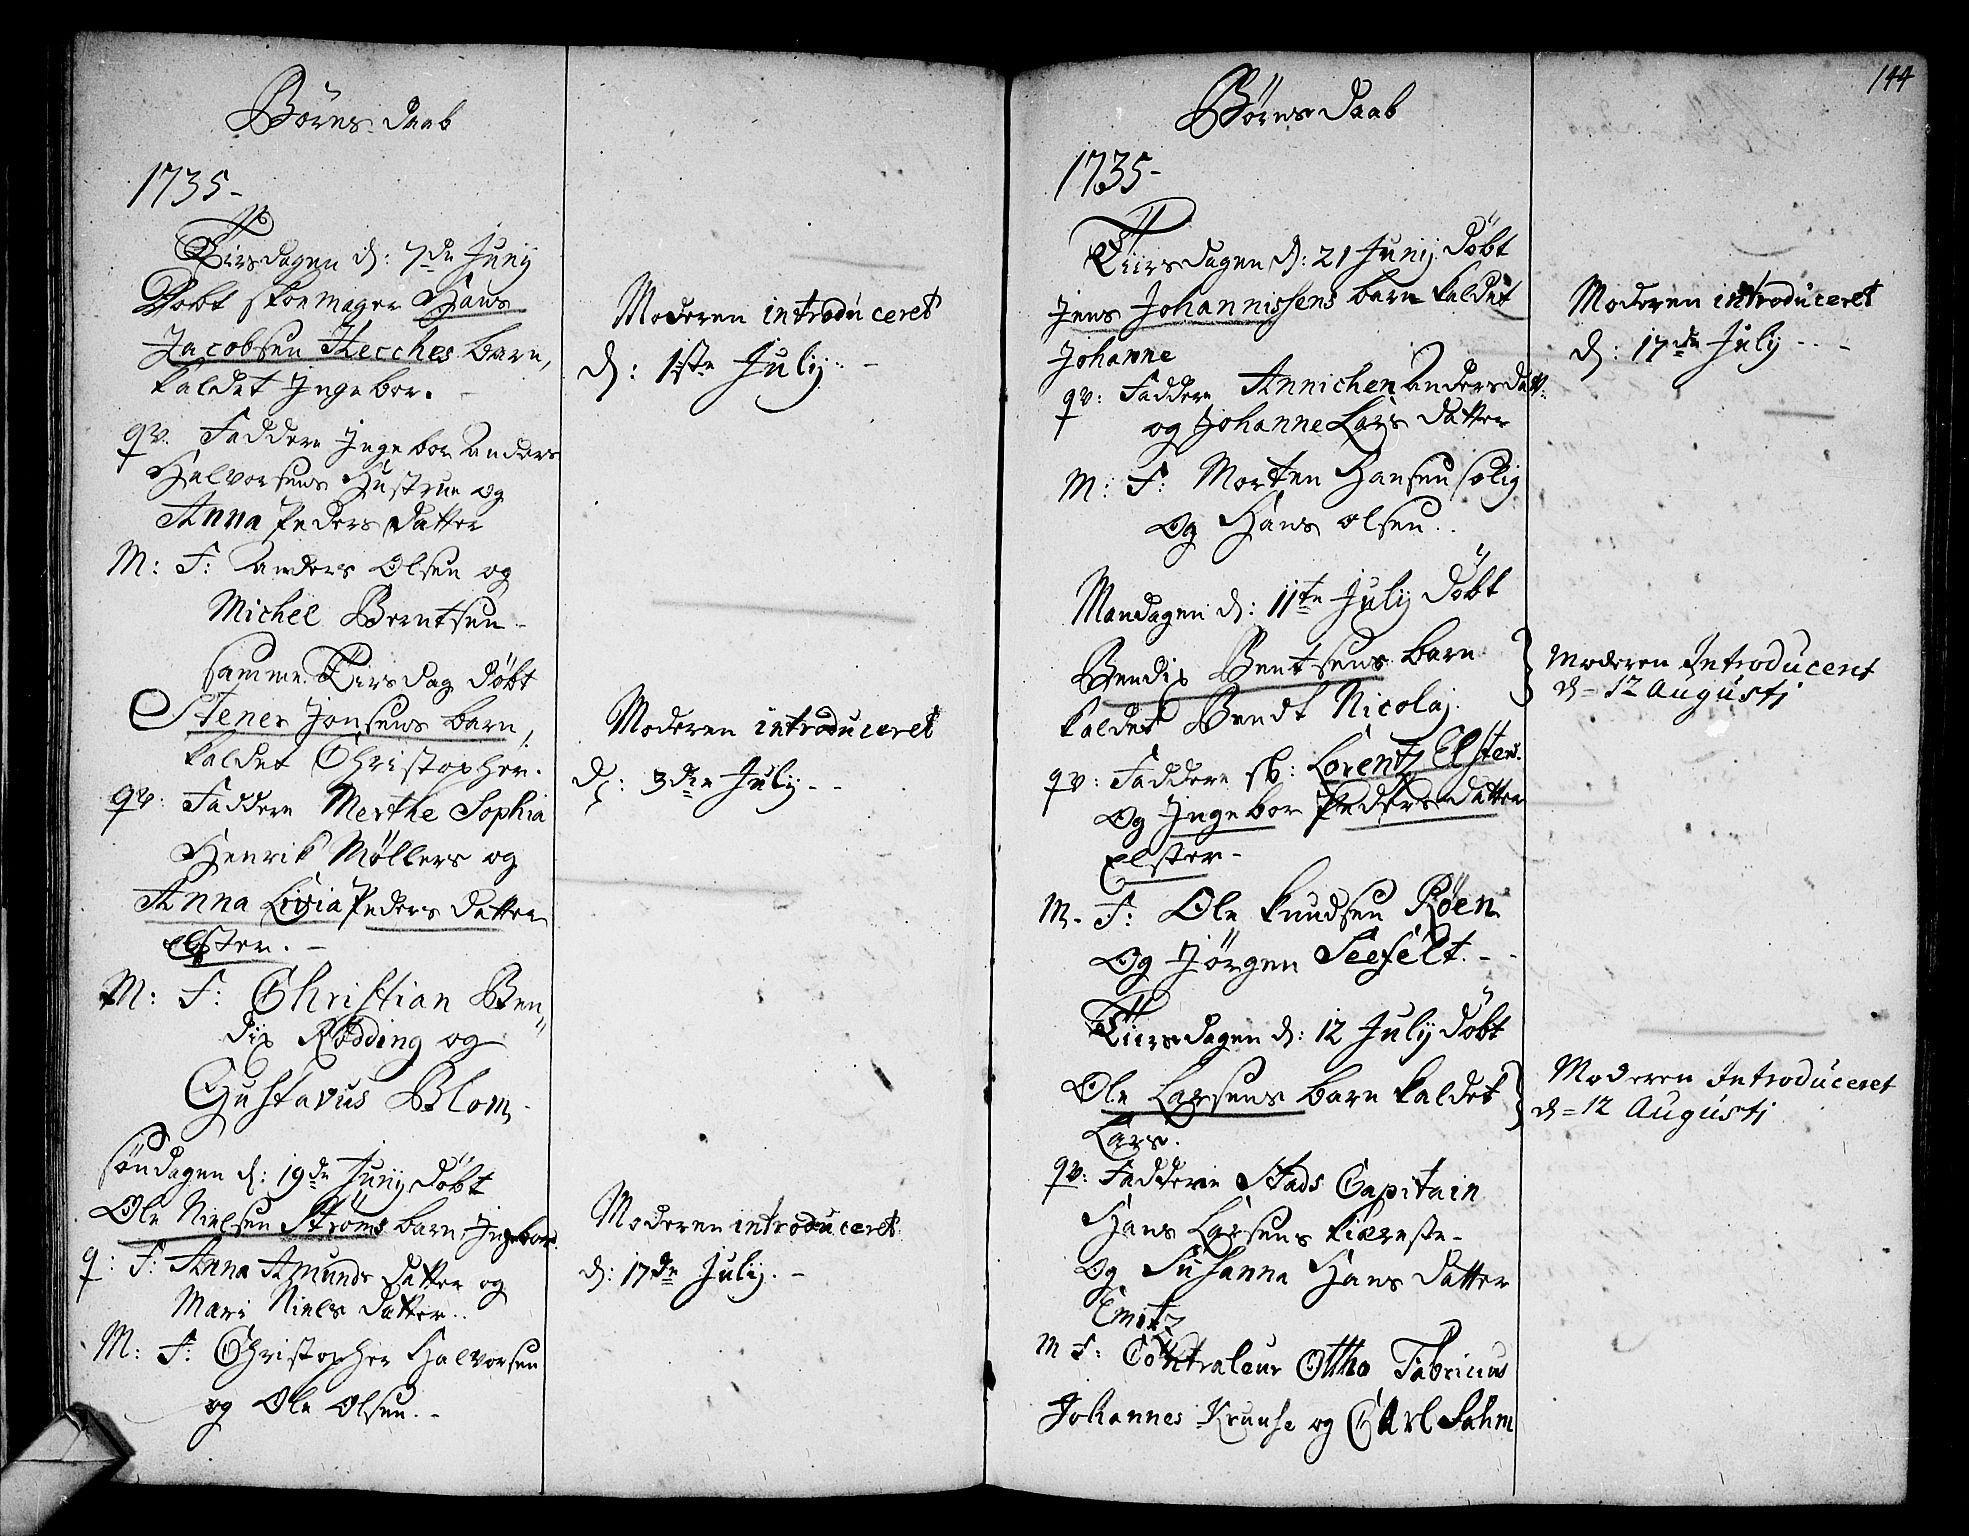 Börns daab
1735-
Tirsdagen d: 7de Junij
Døbt skoemager Hans
Jacobsen Hecches barn,
kaldet Ingebor.
qv. Faddere Ingebor Anders
Halvorsens Hustrue og
Anna Peders datter
M: F: Anders Olsen og
Michel Berntsen -
samme Tirsdag döbt
Stener Jonsens barn,
kaldet Christopher.
qv: Faddere Merthe Sophia
Henrik Møllers og
Anna Livia Peders datter
Elster. -
M: F: Christian Ben„
dix Rødding og
Gustavus Blom
söndagen d: 19de Junij döbt
Ole Nielsen Ströms barn, Ingebor.
q: F: Anna Amunds datter og
Mari Niels datter..
M: F: Christopher Halvorsen
og Ole Olsen. -
Moderen introduceret
d: 1ste Julij -
Moderen introduceret
d: 3die Julij - -
Moderen introduceret
d: 17de Julij. -
144
Børns daab
1735-
Tiirsdagen d: 21 Junij döbt
Jens Johannissens barn kaldet
Johanne
qv: Faddere Annichen Andersdatt:
og Johanne Lars datter
M: F: Morten Hansen
og Hans olsen..
Mandagen d: 11te Julij döbt
Bendix Bentsens barn
kaldet Bendt Nicolaj.
qv: Faddere sl: Lorentz Elsters.
og Ingebor Peders datter
Elster -
M. F: Ole Knudsen Røen
og Jörgen Seefélt. - -
Tiirsdagen d: 12 Julij döbt
Ole Larsens barn kaldet
Lars.
qv: Faddere Stads Capitain
Hans Larsens Kiæreste -
og Susanna Hans datter
M F: Contraleur Ottho Fabricius
Johannes Kruuse og Carl Sahm
Moderen introduceret
d: 17de Julij - - -
Moderen Introduceret
d = 12 Augustj
Moderen Introduceret
d = 12 Augustj